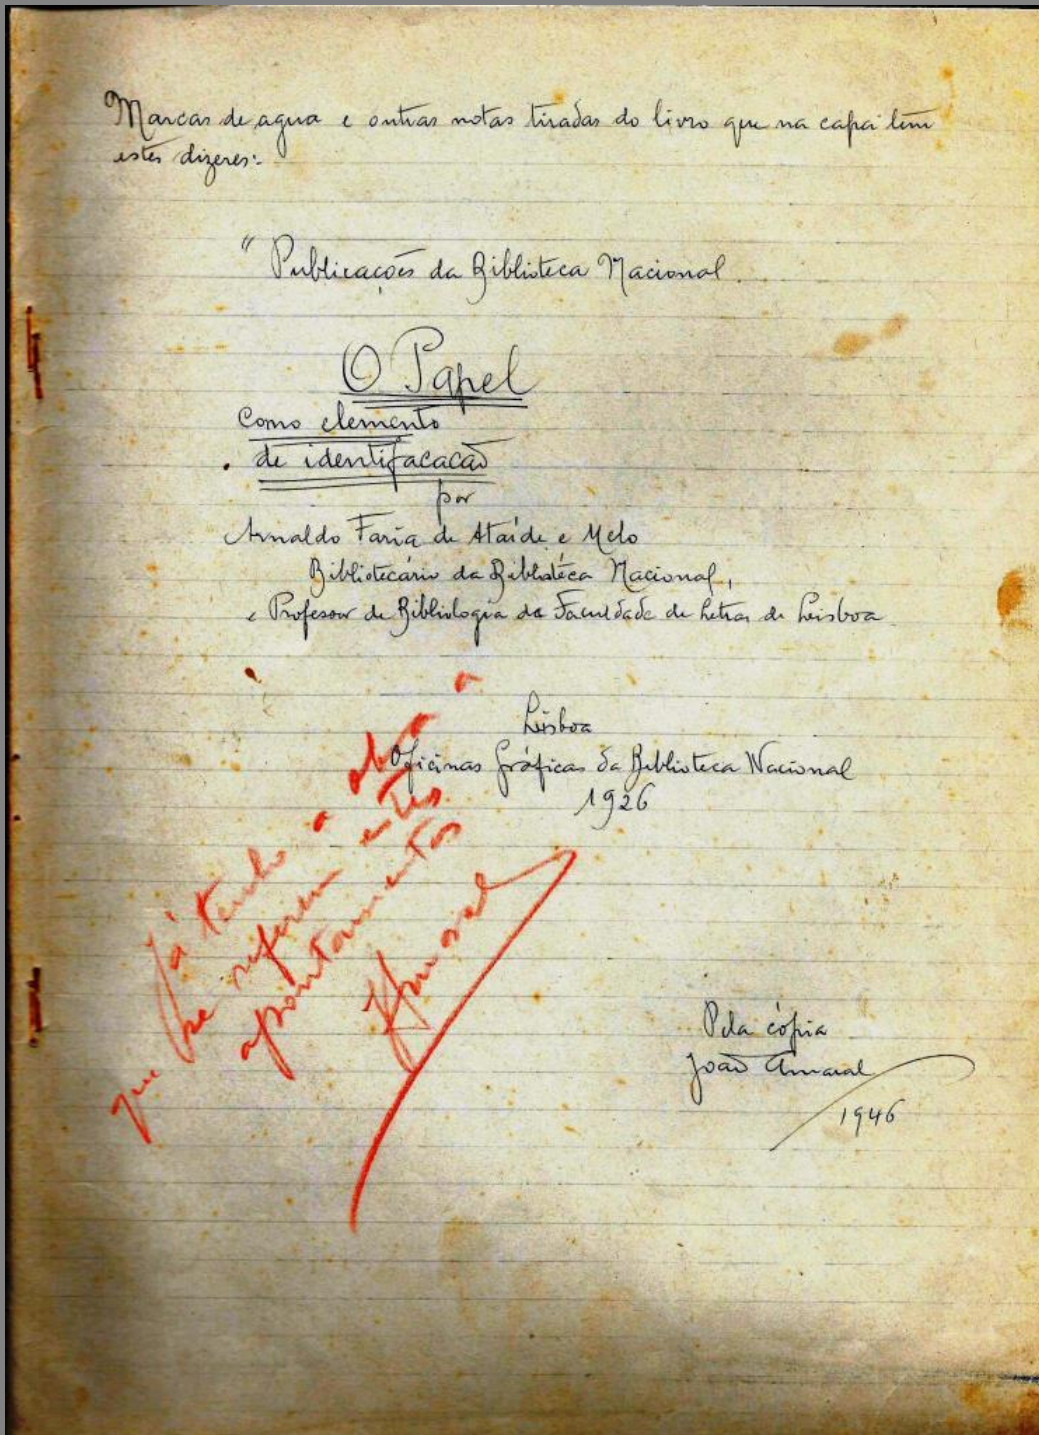 Marcas de agua e outras notas tiradas do livro que na capa tem
estes dizeres:-
"Publicações da Biblioteca Nacional.
O Papel
Como elemento
de identifacacão
por
Arnaldo Faria de Ataíde e Melo
Bibliotecário da Biblioteca Nacional,
e Profesor de Bibliologia da Faculdade de Letras de Leisboa
Lisboa
Oficinas Gráficas da Biblioteca Nacional
1926
Já tenho a obra a
que se referem estes
apontamentos
Amaral
Pela cópia
João Amaral
1946